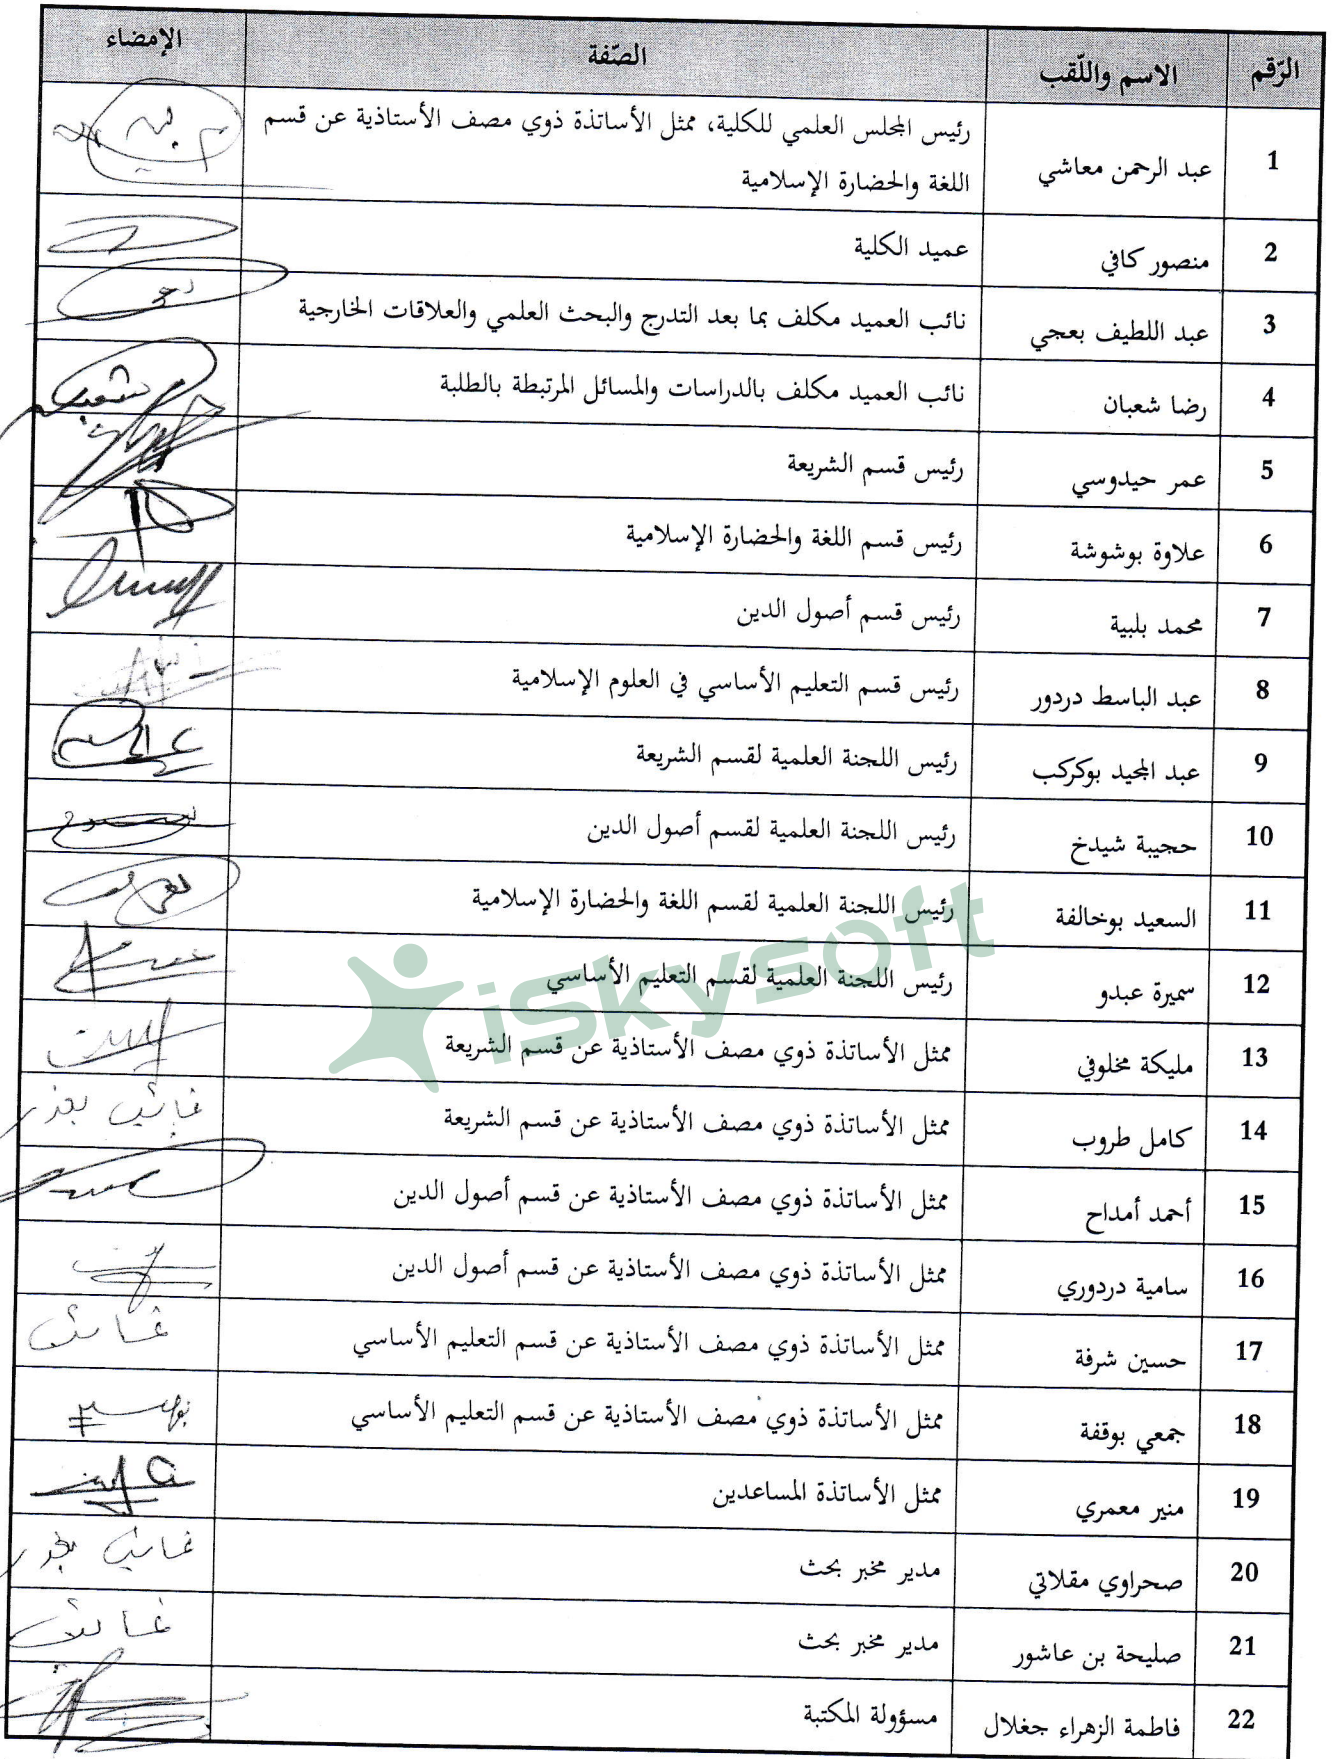 الرّقم الاسم واللّقب الصّفة الإمضاء
1 عبد الرحمن معاشي رئيس المجلس العلمي للكلية، ممثل الأساتذة ذوي مصف الأستاذية عن قسم
اللغة والحضارة الإسلامية
2 منصور كافي عميد الكلية
3 عبد اللطيف بعجي نائب العميد مكلف بما بعد التدرج والبحث العلمي والعلاقات الخارجية
4 رضا شعبان نائب العميد مكلف بالدراسات والمسائل المرتبطة بالطلبة
5 عمر حيدوسي رئيس قسم الشريعة
6 علاوة بوشوشة رئيس قسم اللغة والحضارة الإسلامية
7 محمد بلبية رئيس قسم أصول الدين
8 عبد الباسط دردور رئيس قسم التعليم الأساسي في العلوم الإسلامية
9 عبد المجيد بوكركب رئيس اللجنة العلمية لقسم الشريعة
10 حجيبة شيدخ رئيس اللجنة العلمية لقسم أصول الدين
11 السعيد بوخالفة رئيس اللجنة العلمية لقسم اللغة والحضارة الإسلامية
12 سميرة عبدو رئيس اللجنة العلمية لقسم التعليم الأساسي
iskysoft
13 مليكة مخلوفي ممثل الأساتذة ذوي مصف الأستاذية عن قسم الشريعة
14 كامل طروب ممثل الأساتذة ذوي مصف الأستاذية عن قسم الشريعة غائب بعذر
15 أحمد أمداح ممثل الأساتذة ذوي مصف الأستاذية عن قسم أصول الدين
16 سامية دردوري ممثل الأساتذة ذوي مصف الأستاذية عن قسم أصول الدين
17 حسين شرفة ممثل الأساتذة ذوي مصف الأستاذية عن قسم التعليم الأساسي غائب
18 جمعي بوقفة ممثل الأساتذة ذوي مصف الأستاذية عن قسم التعليم الأساسي
19 منير معمري ممثل الأساتذة المساعدين
20 صحراوي مقلاتي مدير مخبر بحث غائب بعذر
21 صليحة بن عاشور مدير مخبر بحث غائب
22 فاطمة الزهراء جغلال مسؤولة المكتبة